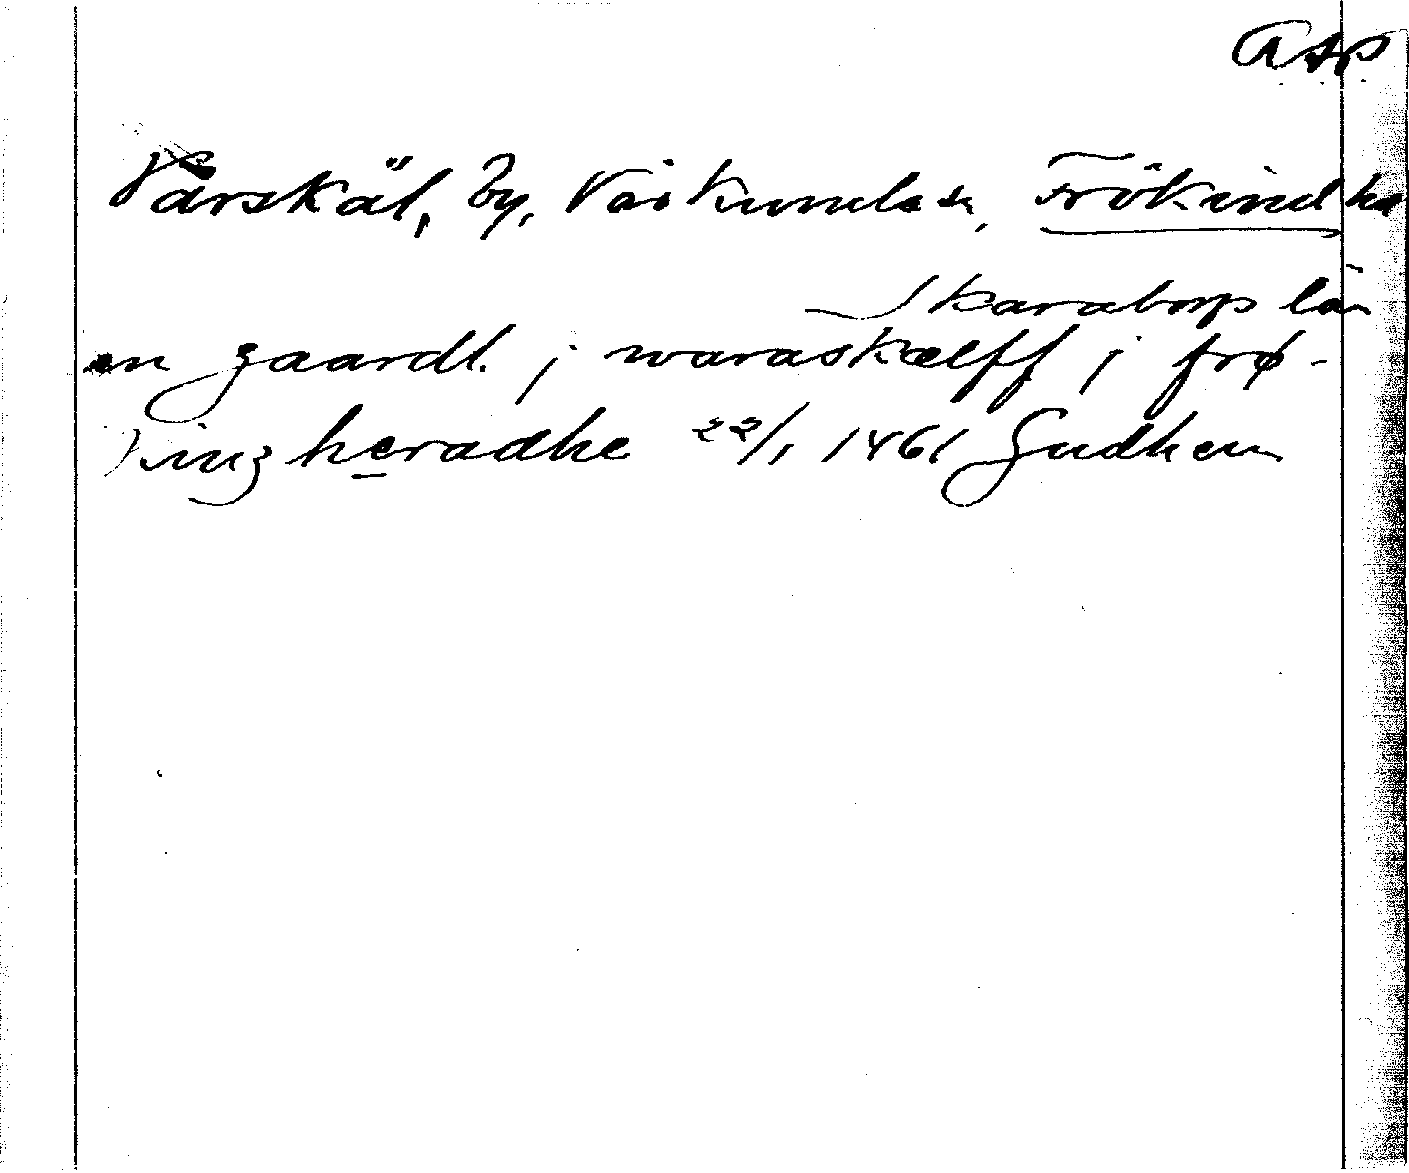 ASP
Vårskäl, by, Vårkumla sn, Frökind hd
Skaraborgs län
en gaardt j waraskælff j frø-
kingheradhe 22/1 1461 Gudhem